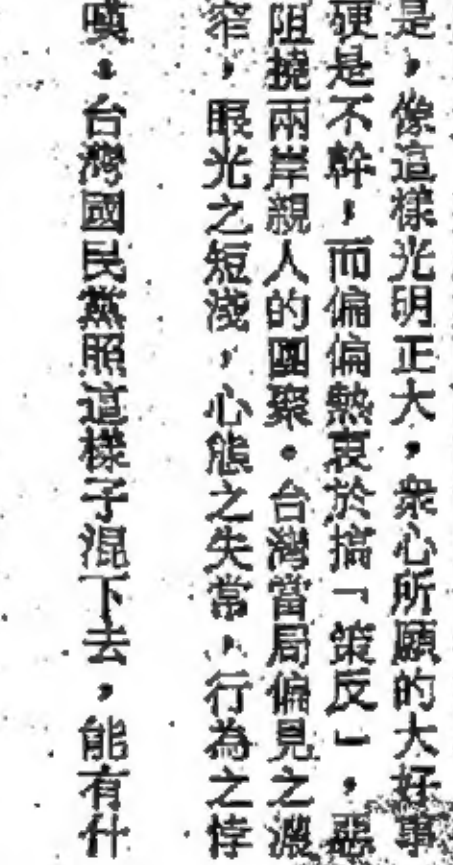 是,像這樣光明正大,衆心所願的大好事
硬是不幹,而偏偏熱衷於搞「策反」,惡
阻撓兩岸親人的團聚。台灣當局偏見之濃
窄,眼光之短淺,心態之失常,行為之悖
嘆。台灣國民黨照這樣子混下去,能有什